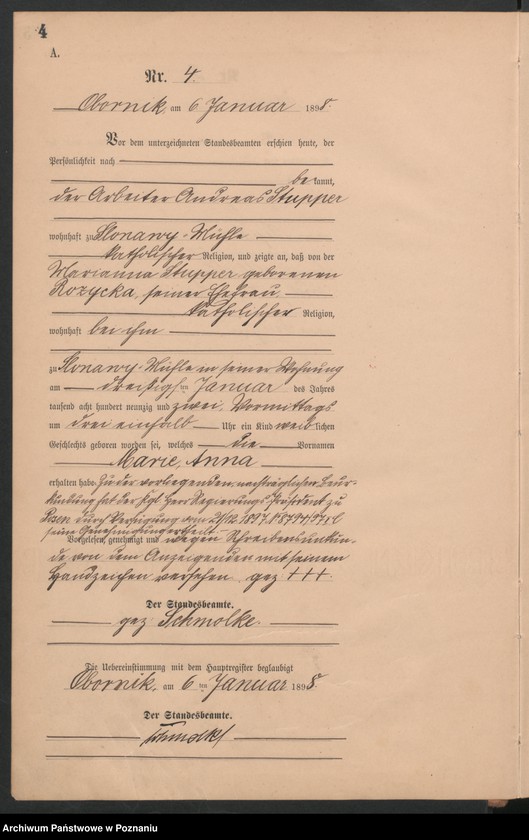 4
A.
Nr. 4.
Obornik, am 6 Januar 1898.
Vor dem unterzeichneten Standesbeamten erschien heute, der
Persönlichkeit nach
bekannt,
der Arbeiter Andreas Stupper
wohnhaft zu Slonawy-Mühle
katholischer Religion, und zeigte an, daß von der
Marianna Stupper geborenen
Rozycka, seiner Ehefrau
katholischer Religion,
wohnhaft bei ihm
zu Slonawy-Mühle in seiner Wohnung
am dreißigsten Januar des Jahres
tausend acht hundert neunzig und zwei, Vormittags
um drei einhalb Uhr ein Kind weiblichen
Geschlechts geboren worden sei, welches die Vornamen
Marie, Anna
erhalten habe. Zu der vorliegenden nachträglichen Beur-
kundung hat der Kgl. Herr Regierungs-Präsident zu
Posen durch Verfügung vom 21/12 1897
seine Genehmigung ertheilt.
Vorgelesen, genehmigt und wegen Schreibensunkun-
de von dem Anzeigenden mit seinem
Handzeichen versehen. gez +++.
Der Standesbeamte.
gez Schmolke.
Die Uebereinstimmung mit dem Hauptregister beglaubigt
Obornik, am 6 ten Januar 1898.
Der Standesbeamte.
Schmolke
Archiwum Państwowe w Poznaniu